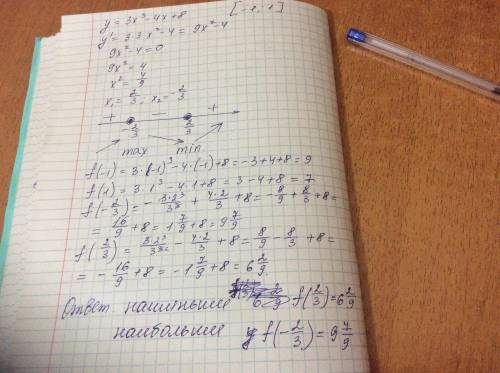 y = 3x³-4x+8 [-1;1]
y' = 3·3x²-4 = 9x²-4
9x²-4=0
9x²=4
x² = 4/9
x₁ = 2/3, x₂ = -2/3
+ — +
-2/3 2/3
max min
f(-1) = 3·(-1)³-4·(-1)+8 = -3+4+8 = 9
f(1) = 3·1³-4·1+8 = 3-4+8 = 7
f(-2/3) = -3·2³/3³ + 4·2/3 + 8 = -8/9 + 8/3 + 8 =
= 16/9 + 8 = 1 7/9 + 8 = 9 7/9
f(2/3) = 3·2³/3³ - 4·2/3 + 8 = 8/9 - 8/3 + 8 =
= -16/9 + 8 = -1 7/9 + 8 = 6 2/9
Ответ наименьшее f(2/3) = 6 2/9
наибольшее f(-2/3) = 9 7/9